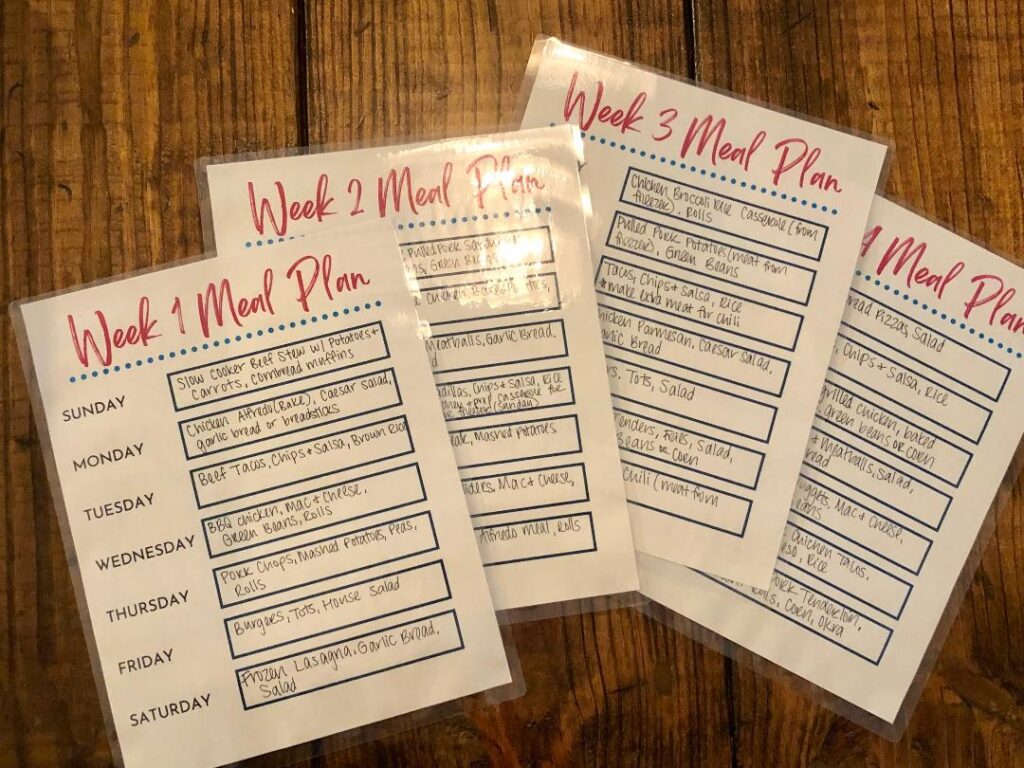 Week 1 Meal Plan
SUNDAY
Slow Cooker Beef Stew w/ Potatoes +
Carrots, Cornbread muffins
MONDAY
Chicken Alfredo (Bake), Caesar Salad,
garlic bread or breadsticks
TUESDAY
Beef Tacos, Chips + Salsa, Brown Rice
WEDNESDAY
BBQ Chicken, Mac + Cheese,
Green Beans, Rolls
THURSDAY
Pork Chops, Mashed Potatoes, Peas,
Rolls
FRIDAY
Burgers, Tots, House Salad
SATURDAY
Frozen Lasagna, Garlic Bread,
Salad
Week 2 Meal Plan
Pulled Pork
Green Beans
Chicken
Meatballs, Garlic Bread,
Chips + Salsa, Rice
casserole for
freezer (Sunday)
Mashed Potatoes
Mac + Cheese,
Alfredo meal, Rolls
Week 3 Meal Plan
Chicken Broccoli Rice Casserole (from
freezer), Rolls
Pulled Pork Potatoes (meat from
freezer), Green Beans
Tacos, Chips + Salsa, Rice
*make extra meat for chili
Chicken Parmesan, Caesar salad,
Bread
Tots, Salad
Salad,
Beans or Corn
Chili (meat from
4 Meal Plan
Bread Pizzas, Salad
Chips + Salsa, Rice
grilled chicken, baked
green beans or corn
+ Meatballs, Salad,
bread
Nuggets, Mac + Cheese,
Chicken Tacos,
Rice
Pork Tenderloin,
Rolls, Corn, Okra